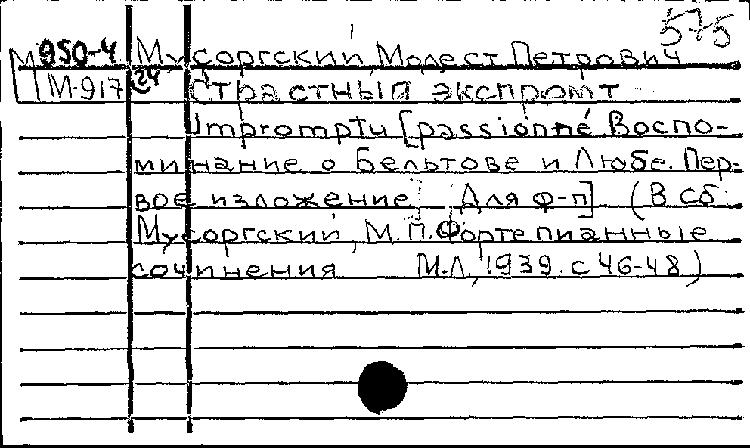 575
М950-4 Мусоргский, Модест Петрович
М-917 24 Страстный экспромт
Impromptu [passionné. Воспо-
минание о Бельтове и Любе. Пер-
вое изложение. Для ф-п] (В сб.
Мусоргский, М.П. Фортепианные
сочинения М.-Л., 1939. с 46-48)